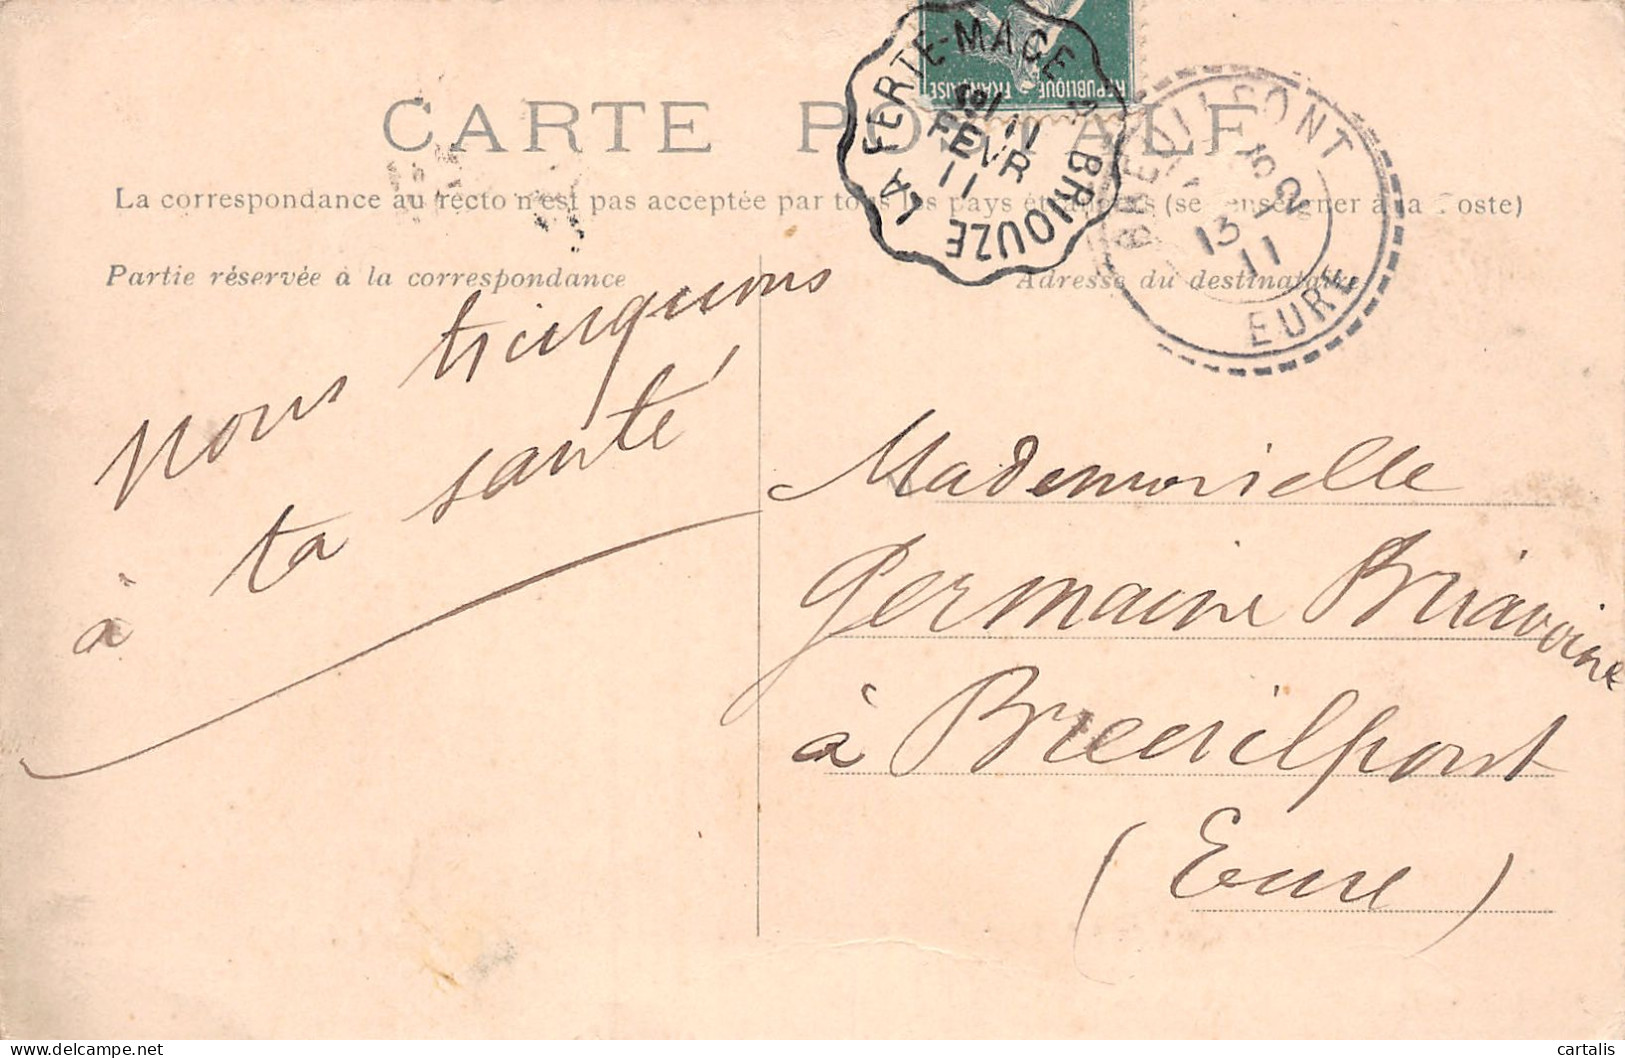 CARTE POSTALE
La correspondance au recto n'est pas acceptée par tous les pays étrangers (se renseigner à la Poste)
Partie réservée à la correspondance
Adresse du destinataire
REPUBLIQUE FRANÇAISE
LA FERTE-MACE A BRIOUZE
11
FEVR
11
BREUILPONT
13 2
11
EURE
nous trinquons
à ta santé
Mademoiselle
Germaine Briavoine
à Breuilpont
(Eure)
cartalis